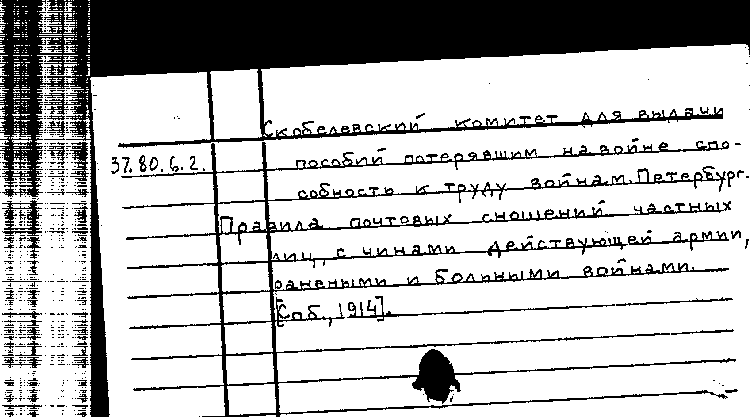 Скобелевский комитет для выдачи
37.80.6.2. пособий потерявшим на войне спо-
собность к труду войнам. Петербург.
Правила почтовых сношений частных
лиц, с чинами действующей армии,
ранеными и больными войнами.
[Спб., 1914].